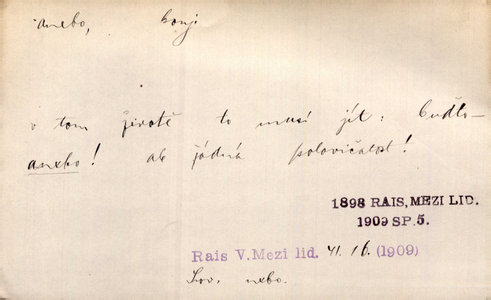 anebo, konj
v tom životě to musí jít: buďto-
anebo! ale žádná polovičatost!
1898 RAIS, MEZI LID.
1909 SP. 5.
Rais V. Mezi lid. 41. 16. (1909)
Srov. nebo.